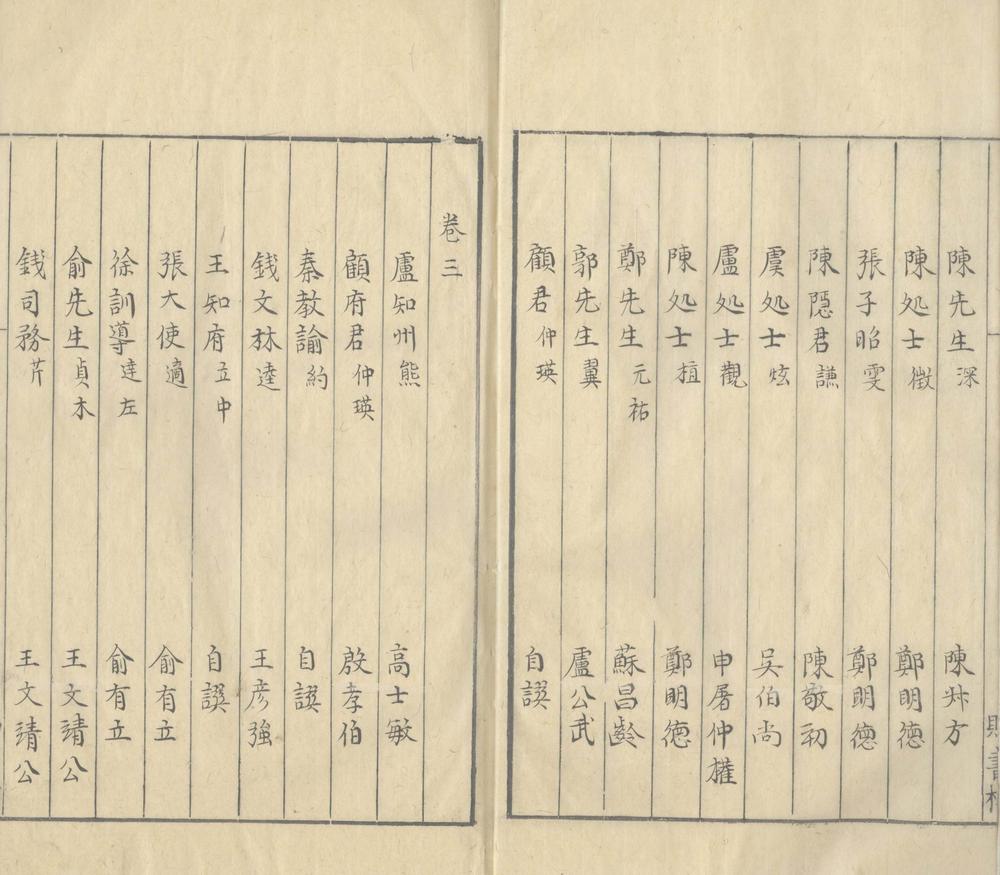 陳先生深 陳叔方
陳処士徵 鄭明德
張子昭雯 鄭明德
陳隱君謙 陳敬初
虞処士炫 吳伯尚
盧処士觀 申屠仲權
陳処士植 鄭明德
鄭先生元祐 蘇昌齡
郭先生翼 盧公武
顧君仲瑛 自譔
卷三
盧知州熊 高士敏
顧府君仲瑛 殷孝伯
秦教諭約 自譔
錢文林逵 王彥強
王知府立中 自譔
張大使適 俞有立
徐訓導達左 俞有立
俞先生貞木 王文靖公
錢司務芹 王文靖公